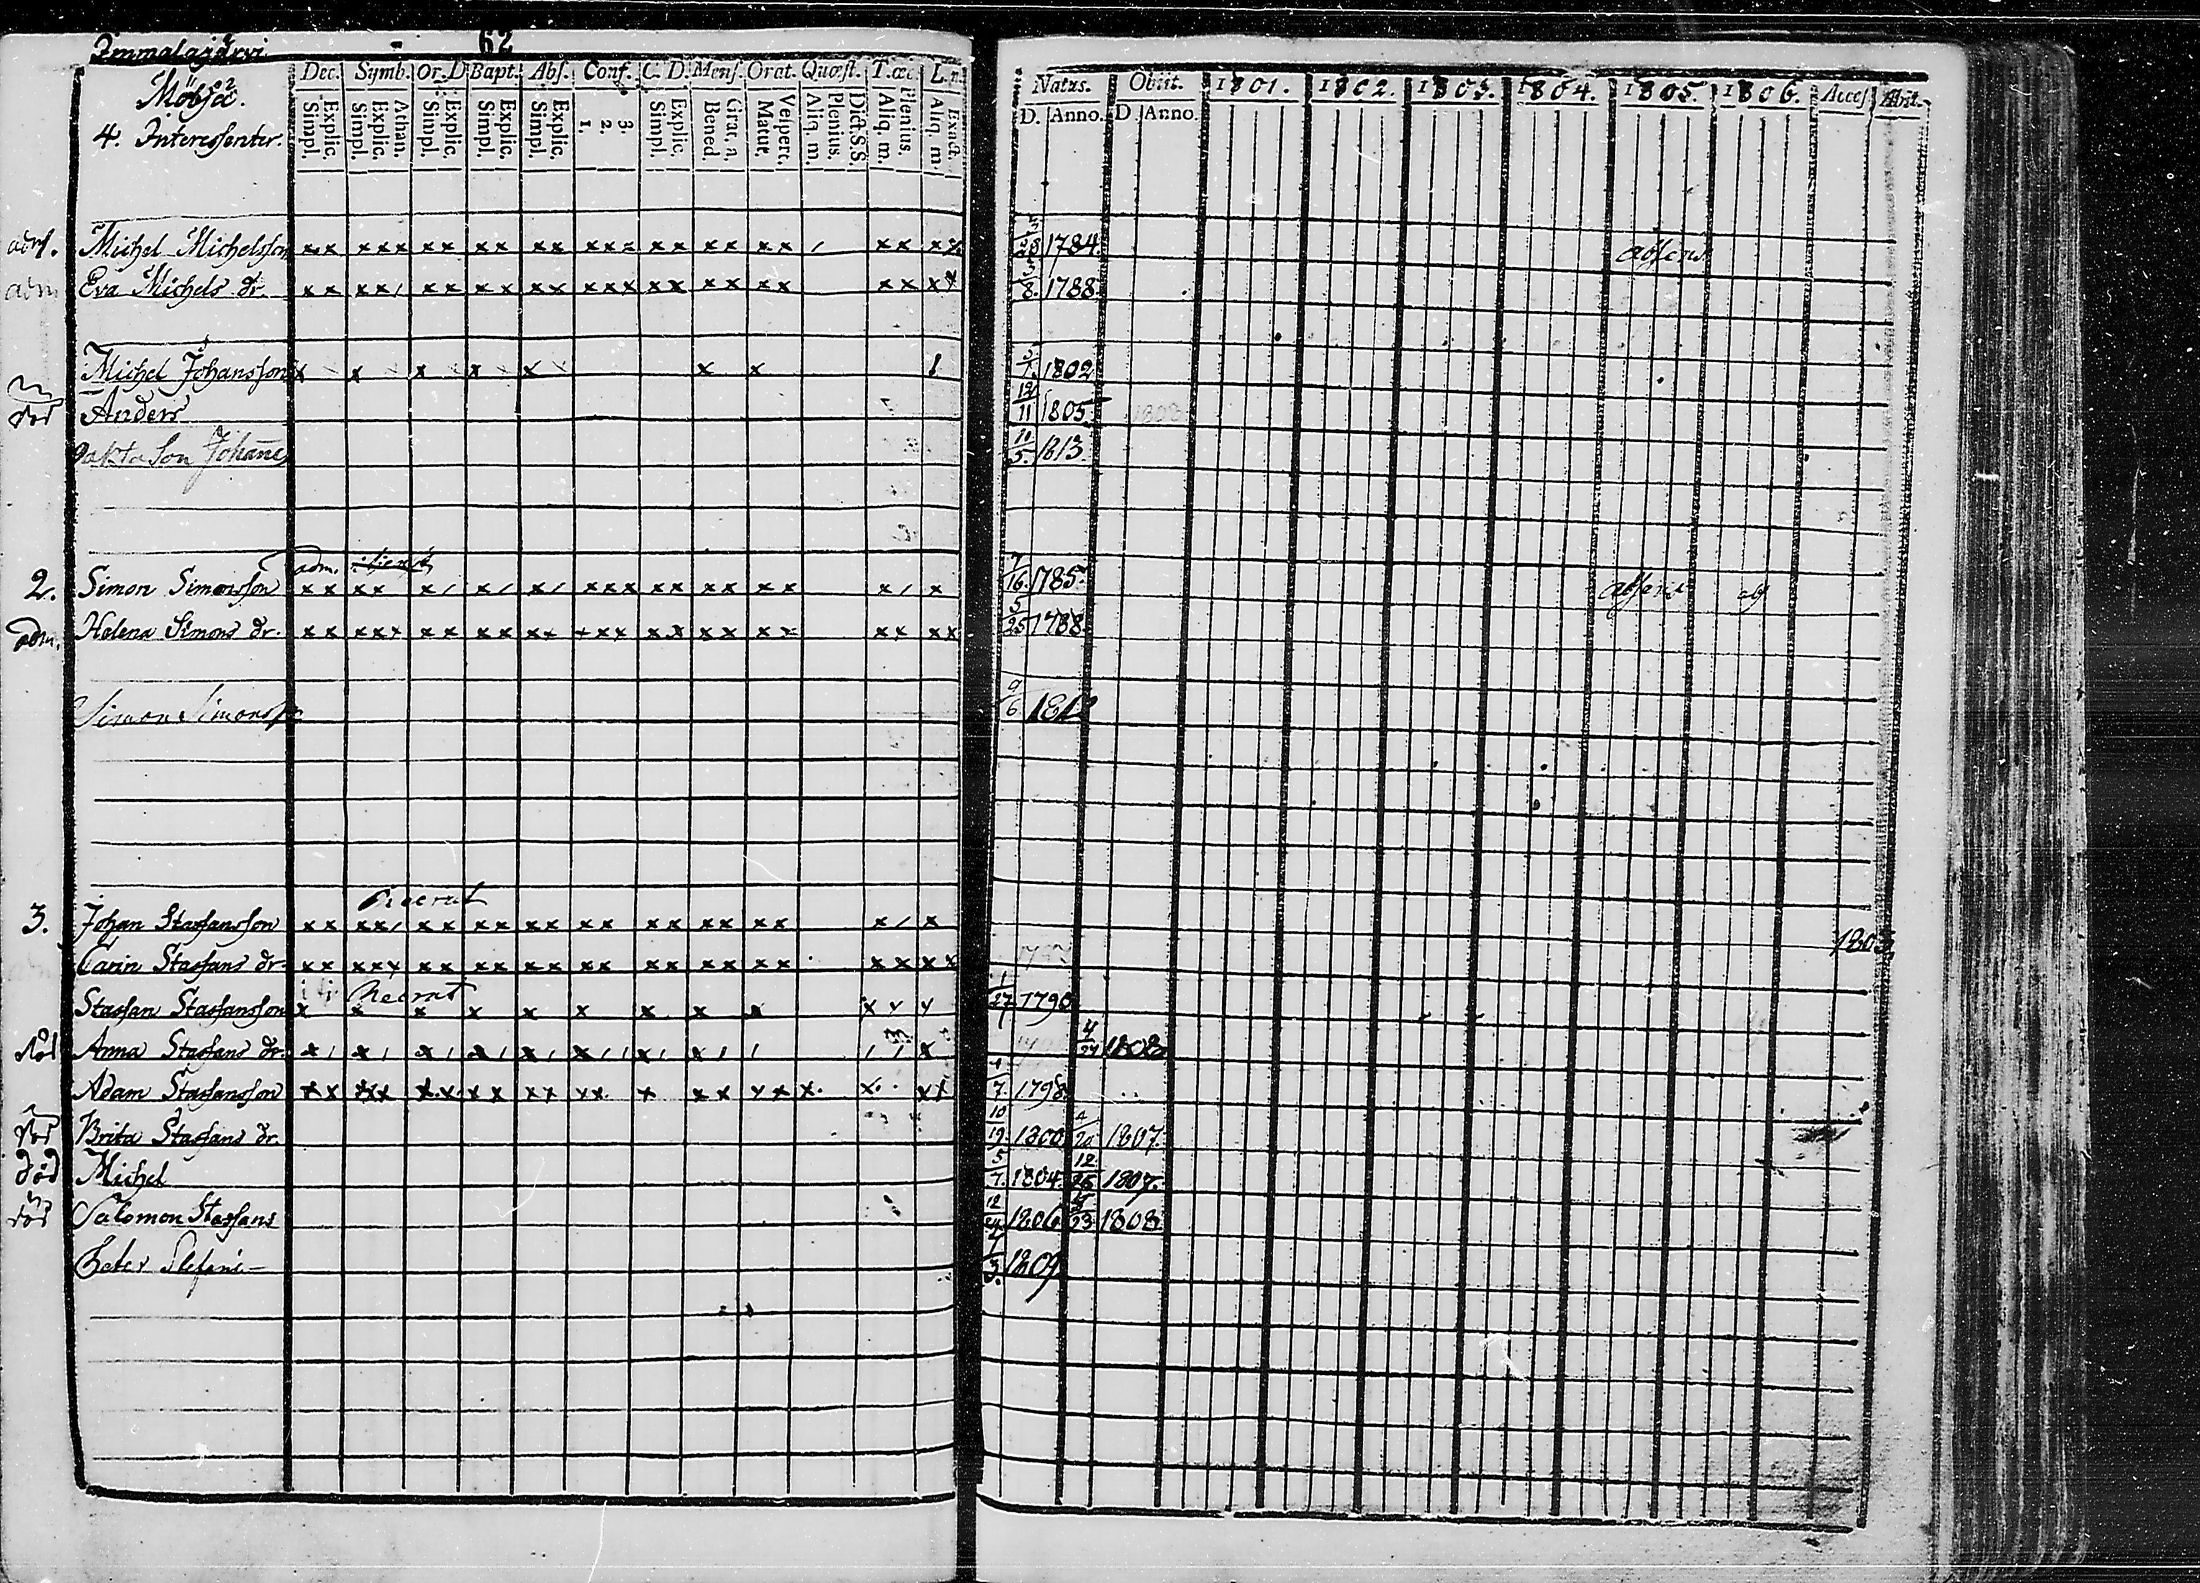 Immalajärvi - 62
Möhjä.
4. Interessenter.
Dec. Symb. Or. D Bapt. Abs. Conf. C. D. Mens. Orat. Quæst. T. œc L. n
Explic. Simpl. Athan. Explic. Simpl. Explic. Simpl. Explic. Simpl. Explic. Simpl. 3. 2. 1. Explic. Simpl. Grat. a. Bened. Vespert. Matut. Dicta S.S. Plenius. Aliq. m. Plenius. Aliq. m. Exact. Aliq. m.
Natus. Obiit. 1801. 1802. 1803. 1804. 1805. 1806. Access Abit.
D. Anno. D. Anno.
adm. Michel Michelsson 28 1784. absens
adm Eva Michels dr. 3/8. 1788.
Michel Johansson 5/1. 1802
död Anders 12/11 1805.
Son Johan 10/5. 1813.
adm.
2. Simon Simonsson 7/16. 1785. absens abs
adm. Helena Simons dr. 5/25 1788.
Simon Simonss 9/6 1812
Recrut
3. Johan Staffansson 1803
Carin Staffans dr.
Recrut
Staffan Staffansson 1/27 1790
död Anna Staffans dr. 4/24 1808
Adam Staffansson 7. 1798.
död Brita Staffans dr. 10/19. 1800 4/20 1807.
död Michel 5/7. 1804. 12/26 1807.
död Salomon Staffans 12/24 1806 23 1808
Peter Stefans- 3. 1809